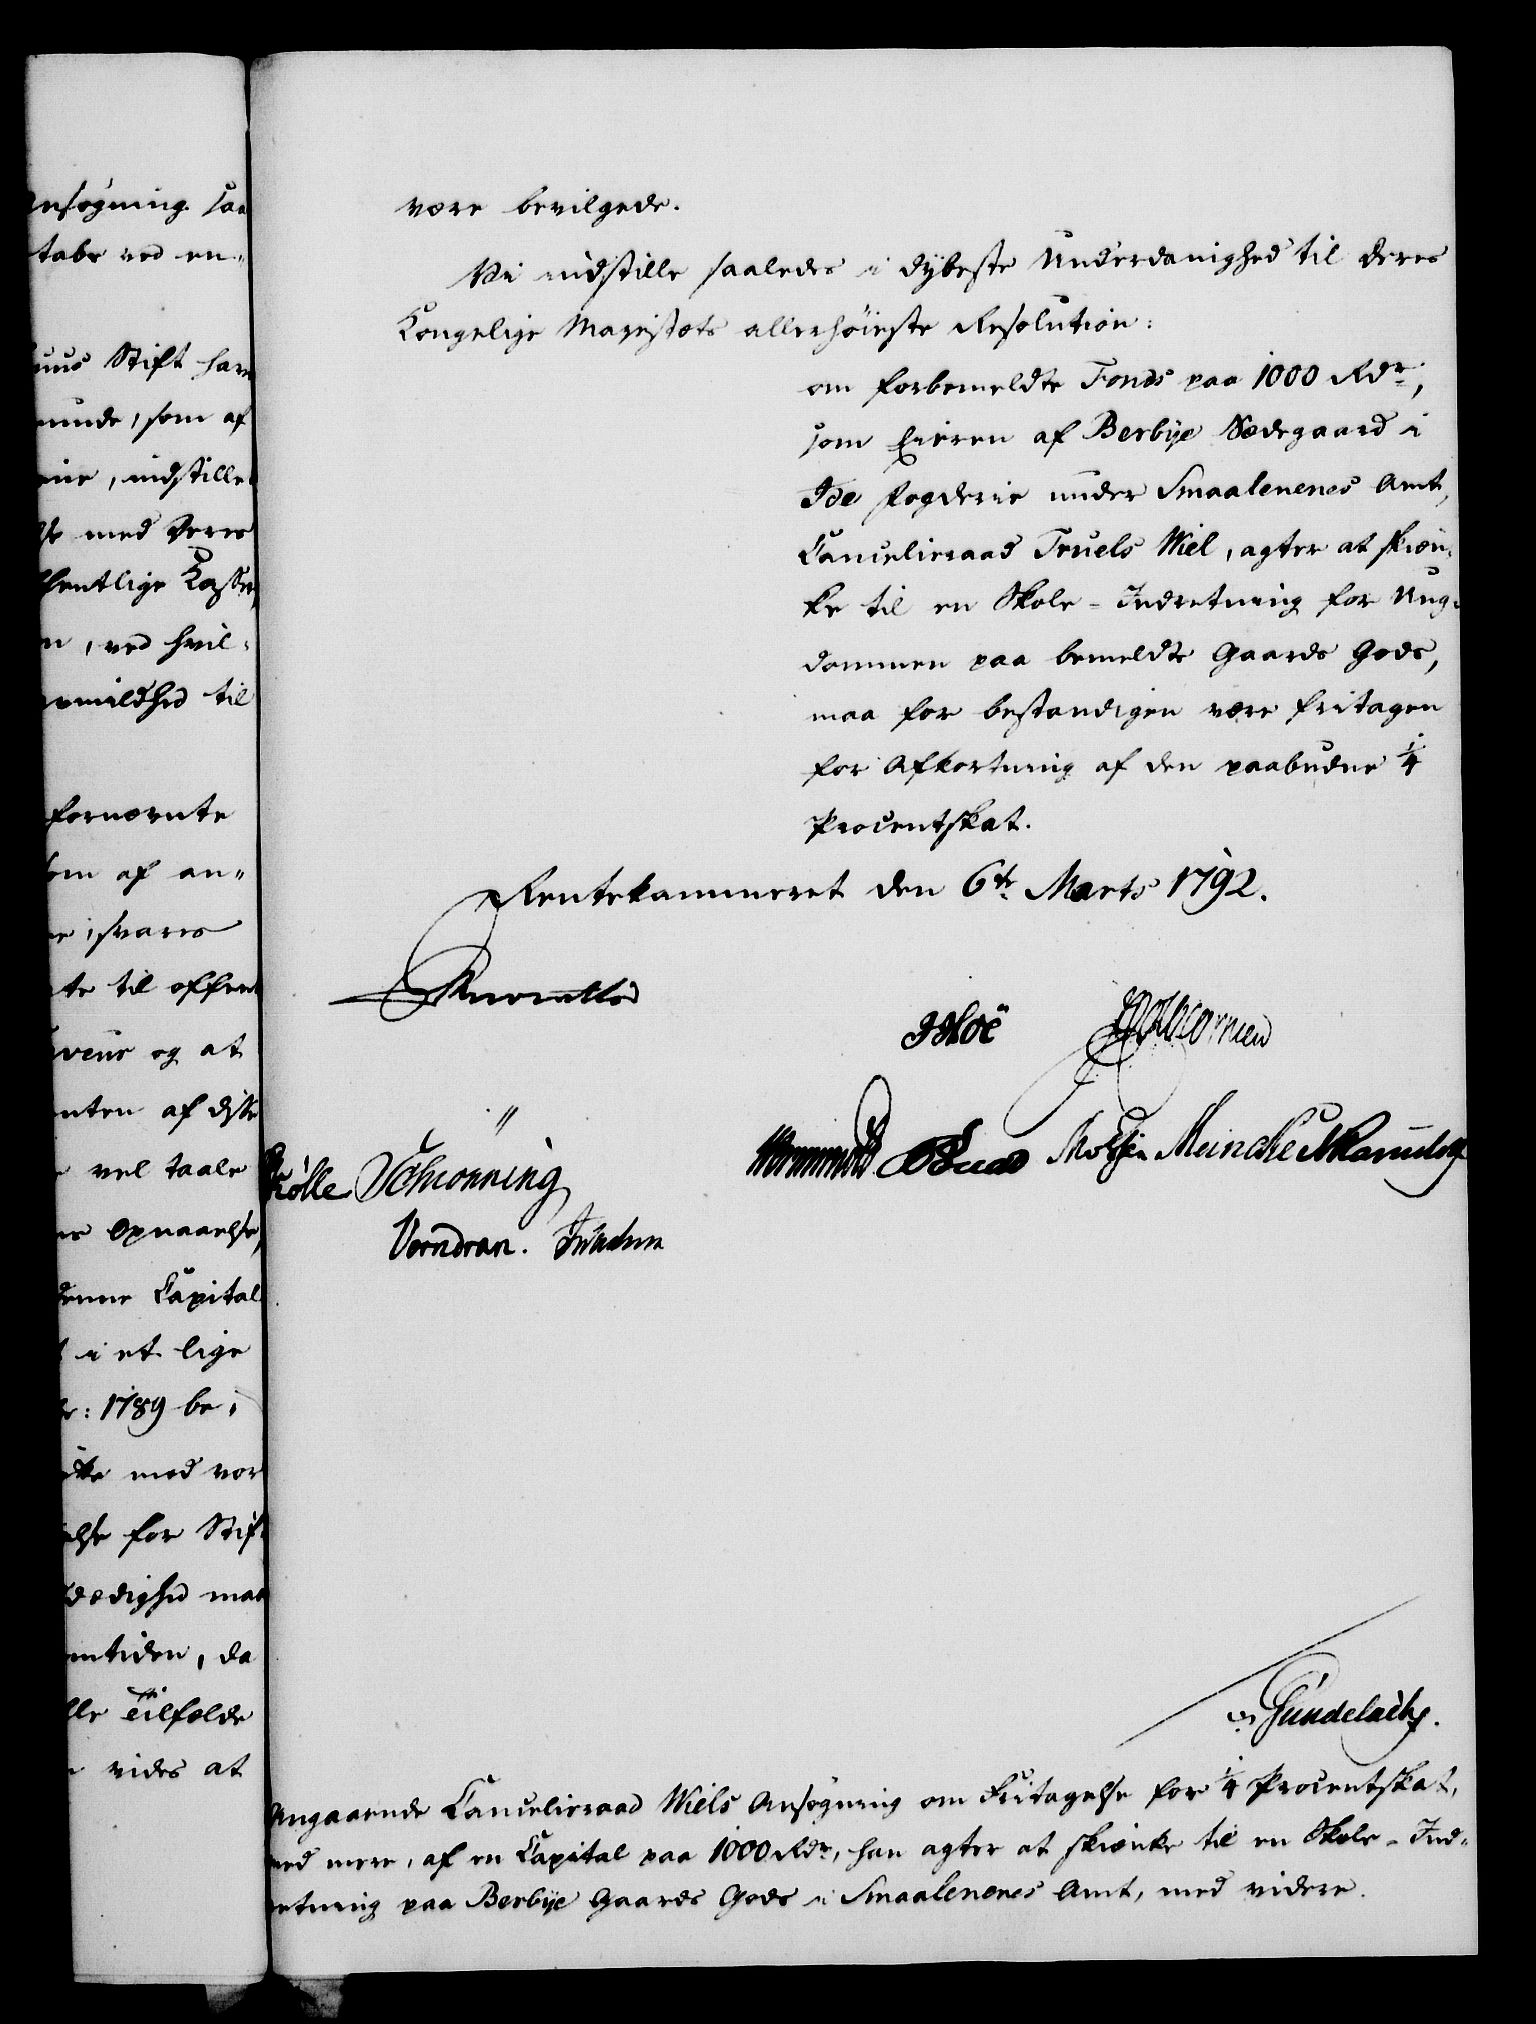 nsøgning saa
tabe ved en-
uus Stift har
unde, som af
eie, indstille
med Deres
fentlige Kasser,
n, ved hvil-
mildhed til
fornævnte
om af an-
svares
te til offent
og at
nten af disse
vel taale
Opnaaelse,
denne Capital
i et lige
: 1789 be-
ikke med vor
else for Stif-
dædighed maa
mtiden, da
lle Tilfælde
vides at
være bevilgede.
Vi indstille saaledes i dybeste Underdanighed til Deres
Kongelige Majestæts allerhöieste Resolution:
om forbemeldte Fonds paa 1000 Rdr,
som Eieren af Berbye Sædegaard i
Ide Fogderie under Smaalenenes Amt,
Cancelieraad Truels Wiel, agter at skiæn-
ke til en Skole-Indretning for Ung-
dommen paa bemeldte Gaards Gods,
maa for bestandigen være fritagen
for Afkortning af den paabudne 1/4
Procentskat.
Rentekammeret den 6te Marts 1792.
Reventlow
JHoë
Wormskiold Bead Mölser Meincke NKamstrup
Rølle Schiönning
Verndran.
Gundelach.
Angaaende Cancelieraad Wiels Ansøgning om Fritagelse for 1/4 Procentskat,
med mere, af en Capital paa 1000 Rdr, han agter at skienke til en Skole-Ind-
retning paa Berbye Gaards Gods i Smaalenenes Amt, med videre.